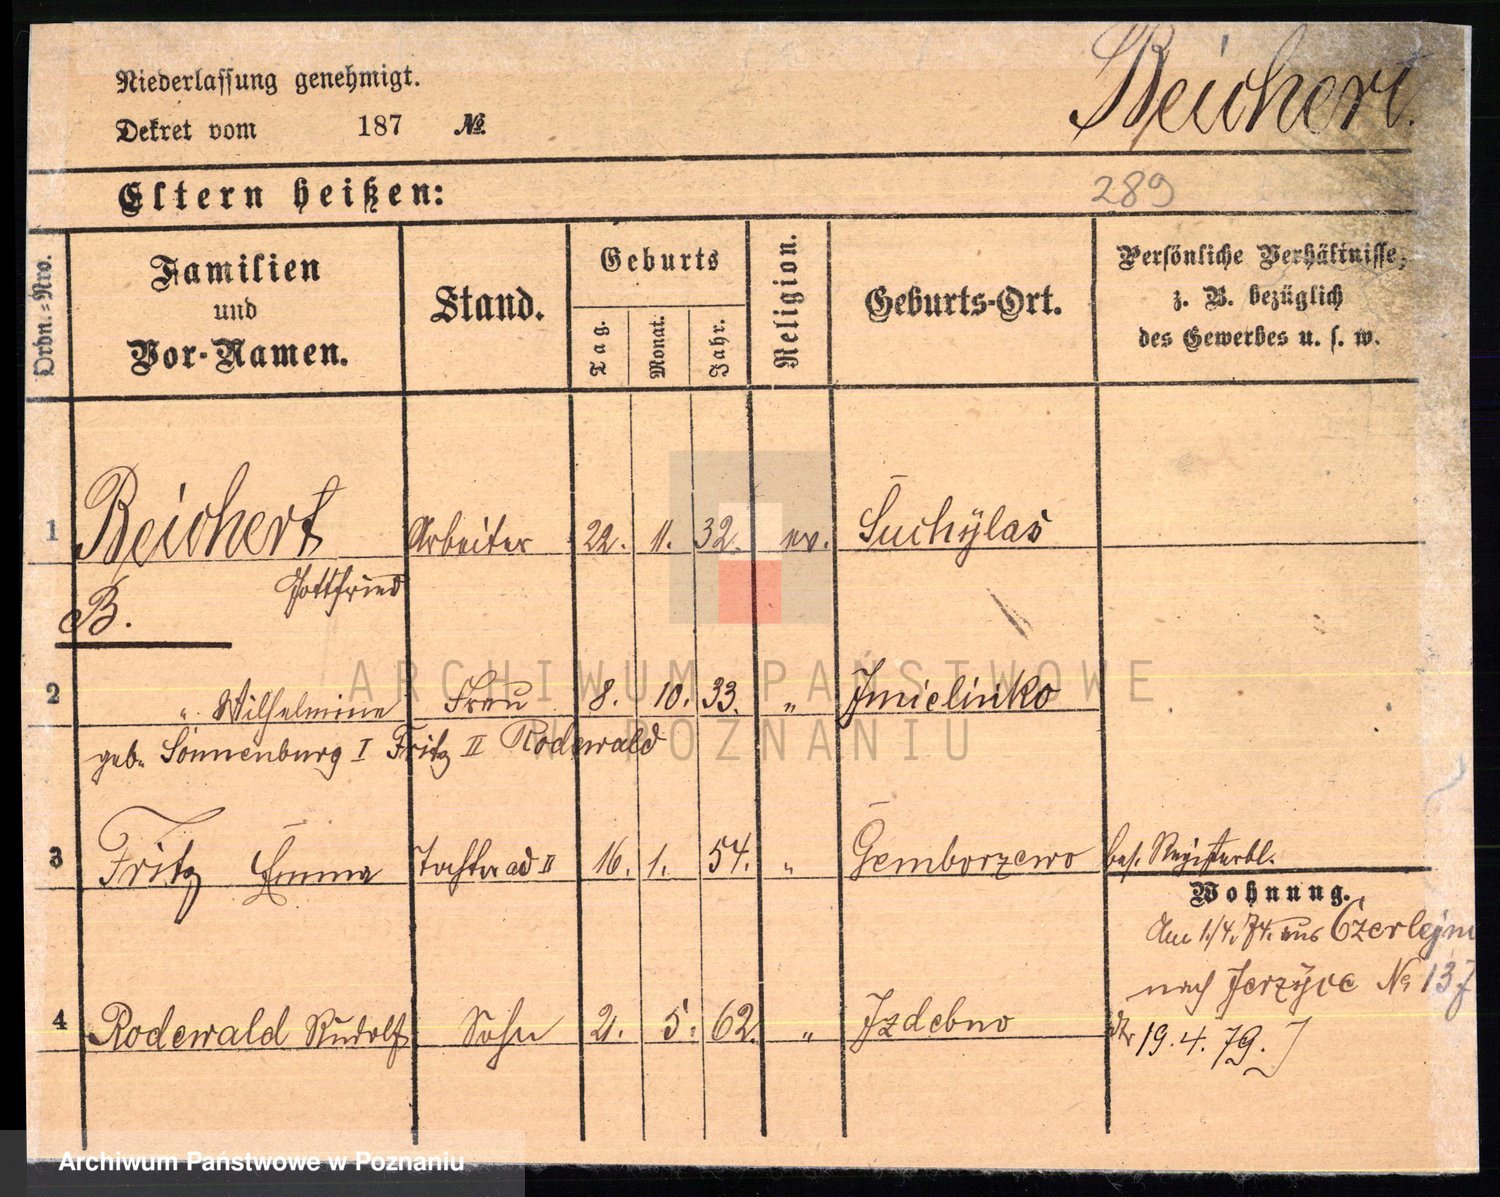 Niederlassung genehmigt.
Reichert.
Dekret vom 187 №
Eltern heißen:
289
Ordn.-Nro.
Familien und Vor-Namen.
Stand.
Geburts
Tag.
Monat.
Jahr.
Religion.
Geburts-Ort.
Persönliche Verhältnisse,
z. B. bezüglich
des Gewerbes u. s. w.
1 Reichert Arbeiter 22. 11. 32. ev. Suchylas
Gottfried
B.
2 " Wilhelmine Frau 8. 10. 33. " Imielinko
geb. Sonnenburg I Fritz II Rodewald
3 Fritz Emma Tochter ad II 16. 1. 54. " Gemborzewo bes. Registerbl.
Wohnung.
Am 1./4. 74. aus Czerlejno
nach Jerzyce № 137
4 Rodewald Rudolf Sohn 21. 5. 62. " Izdebno
19. 4. 79.
ARCHIWUM PAŃSTWOWE
W POZNANIU
Archiwum Państwowe w Poznaniu